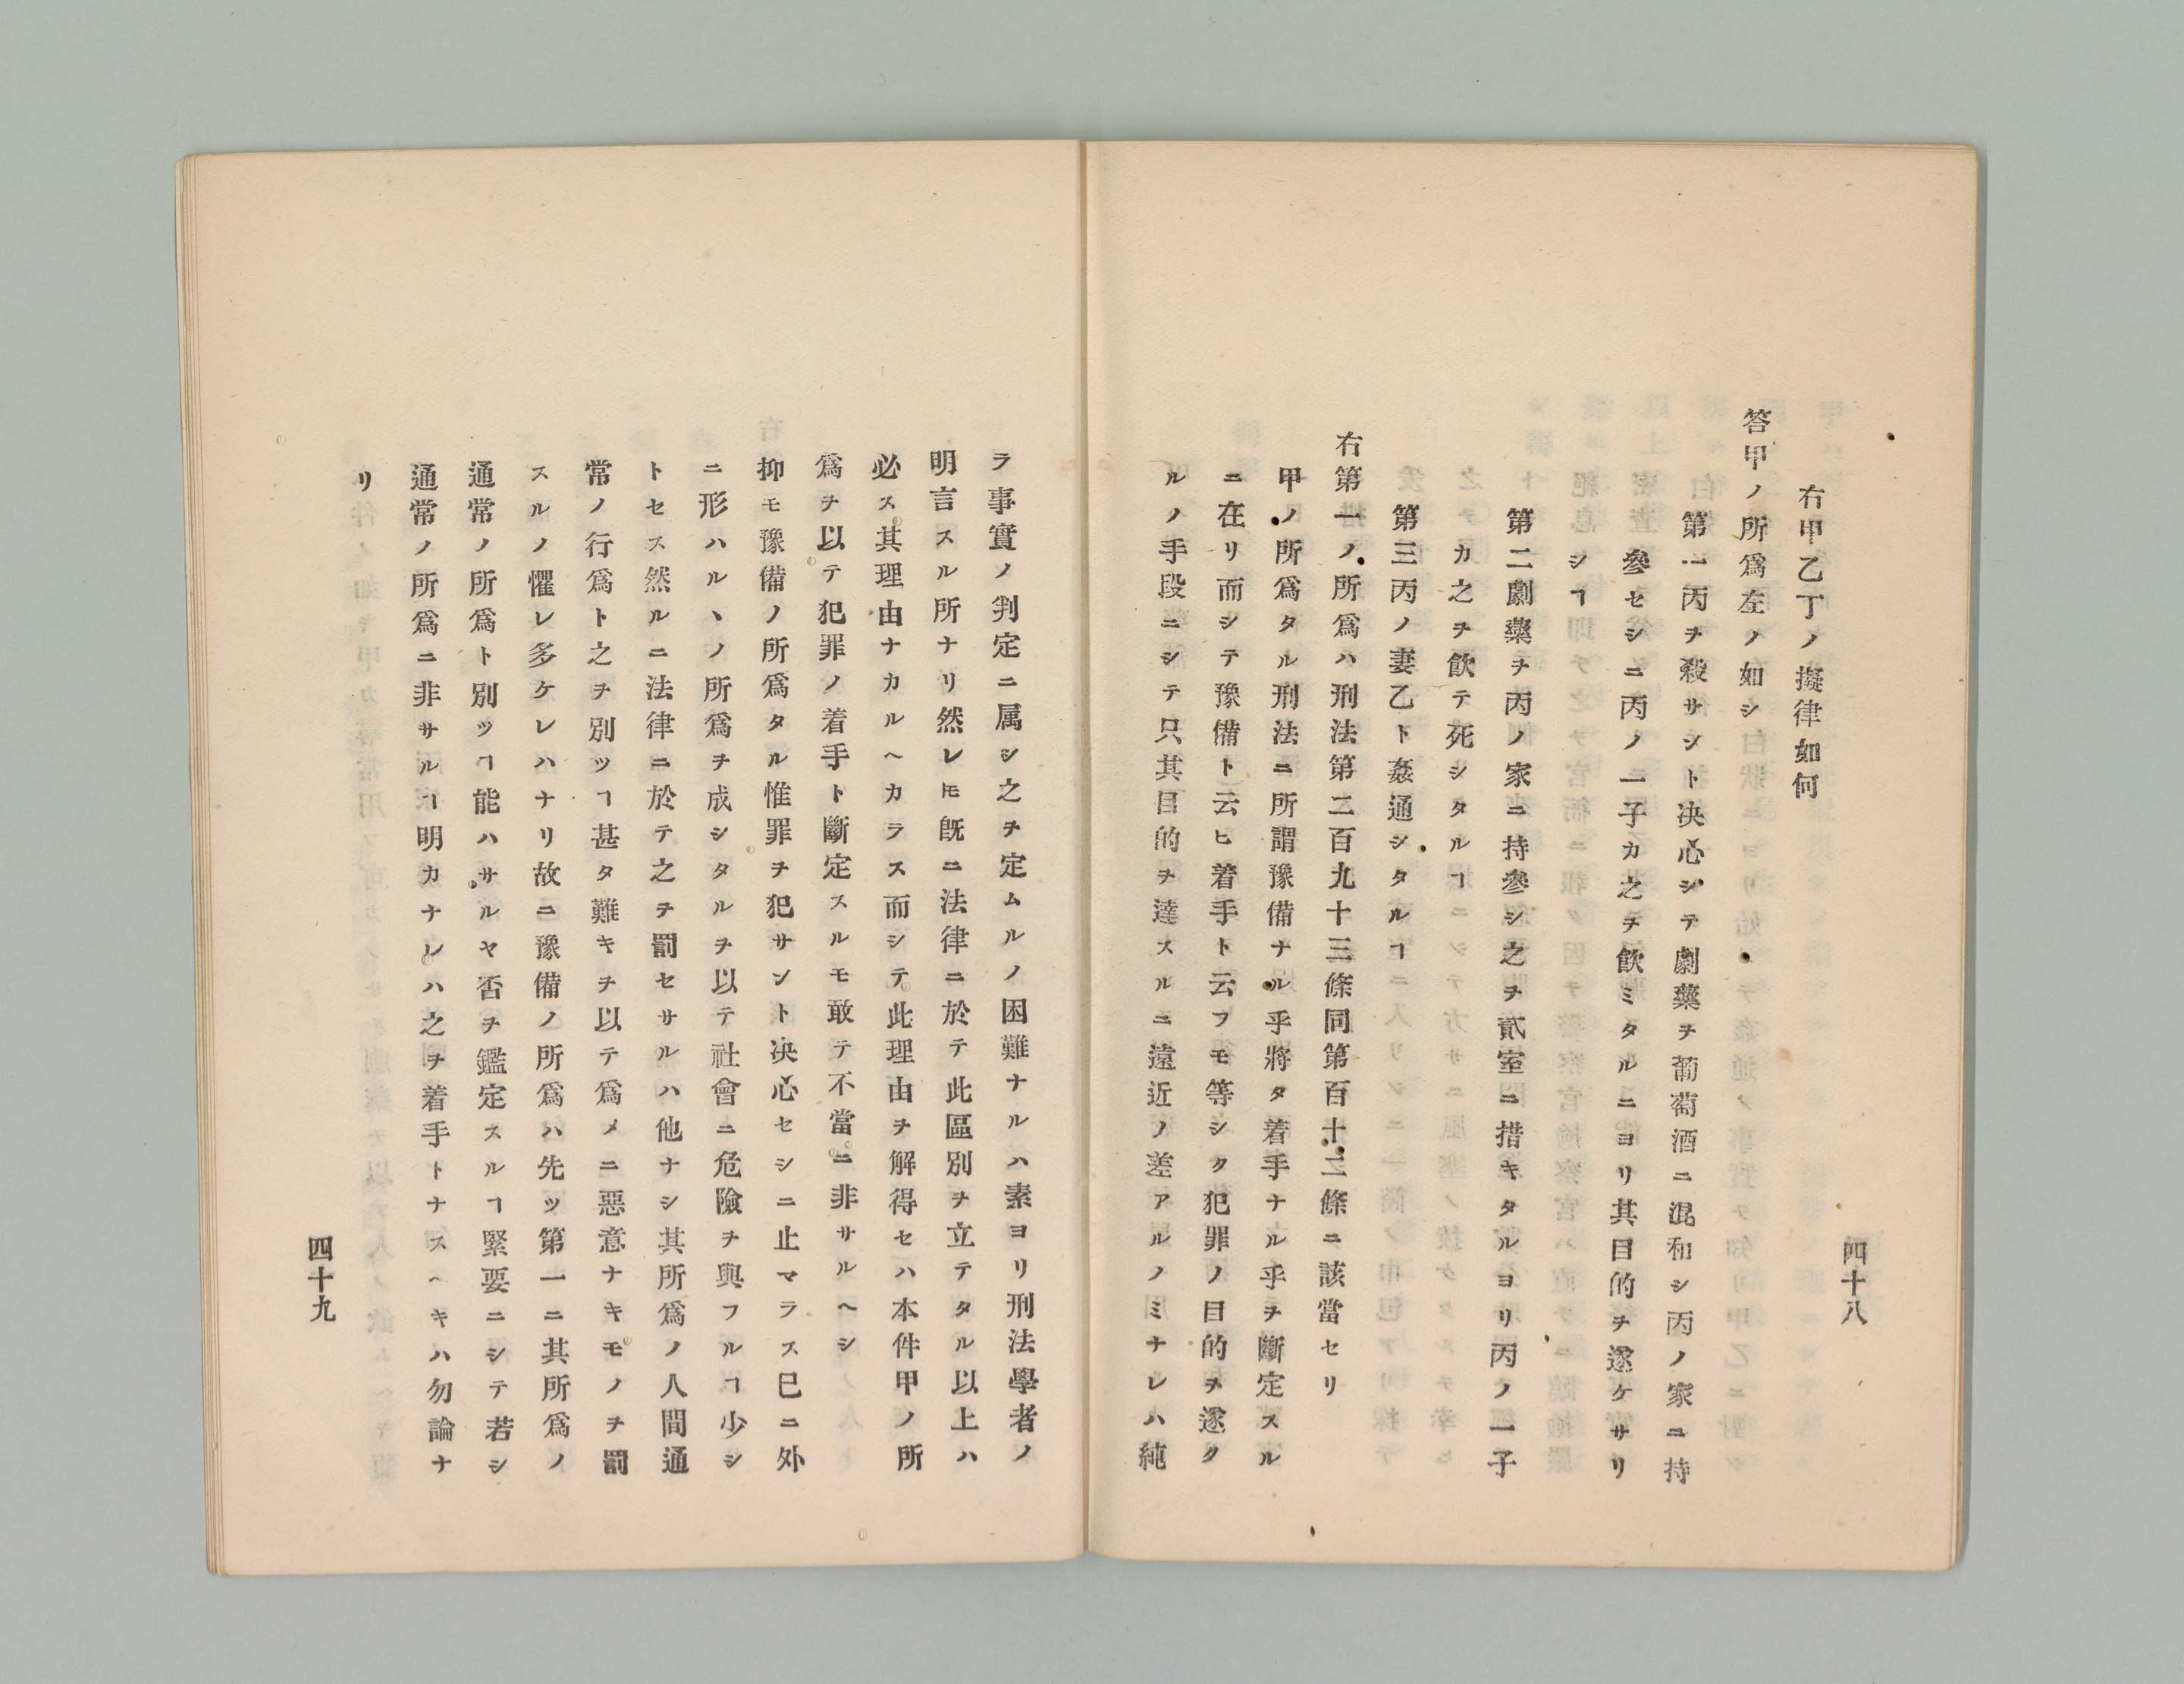 四十八
右甲乙丁ノ擬律如何
答甲ノ所爲左ノ如シ
第一丙ヲ殺サント决心シテ劇藥ヲ葡萄酒ニ混和シ丙ノ家ニ持
參セシニ丙ノ一子カ之ヲ飮ミタルニヨリ其目的ヲ遂ケサリ
シヿ
第二劇藥ヲ丙ノ家ニ持參シ之ヲ貳室ニ措キタルヨリ丙ノ一子
カ之ヲ飮テ死シタルヿ
第三丙ノ妻乙ト姦通シタルヿ
右第一ノ所爲ハ刑法第二百九十三條同第百十二條ニ該當セリ
甲ノ所爲タル刑法ニ所謂豫備ナル乎將タ着手ナル乎ヲ斷定スル
ニ在リ而シテ豫備ト云ヒ着手ト云フモ等シク犯罪ノ目的ヲ遂ク
ルノ手段ニシテ只其目的ヲ達スルニ遠近ノ差アルノミナレハ純
ラ事實ノ判定ニ属シ之ヲ定ムルノ困難ナルハ素ヨリ刑法學者ノ
明言スル所ナリ然レㇳモ既ニ法律ニ於テ此區別ヲ立テタル以上ハ
必ス其理由ナカルヘカラス而シテ此理由ヲ解得セハ本件甲ノ所
爲ヲ以テ犯罪ノ着手ト斷定スルモ敢テ不當ニ非サルヘシ
抑モ豫備ノ所爲タル惟罪ヲ犯サント决心セシニ止マラス已ニ外
ニ形ハルヽノ所爲ヲ成シタルヲ以テ社會ニ危險ヲ與フルヿ少シ
トセス然ルニ法律ニ於テ之ヲ罰セサルハ他ナシ其所爲ノ人間通
常ノ行爲ト之ヲ別ツヿ甚タ難キヲ以テ爲メニ惡意ナキモノヲ罰
スルノ懼レ多ケレハナリ故ニ豫備ノ所爲ハ先ツ第一ニ其所爲ノ
通常ノ所爲ト別ツヿ能ハサルヤ否ヲ鑑定スルヿ緊要ニシテ若シ
通常ノ所爲ニ非サルヿ明カナレハ之ヲ着手トナスヘキハ勿論ナ
リ
四十九